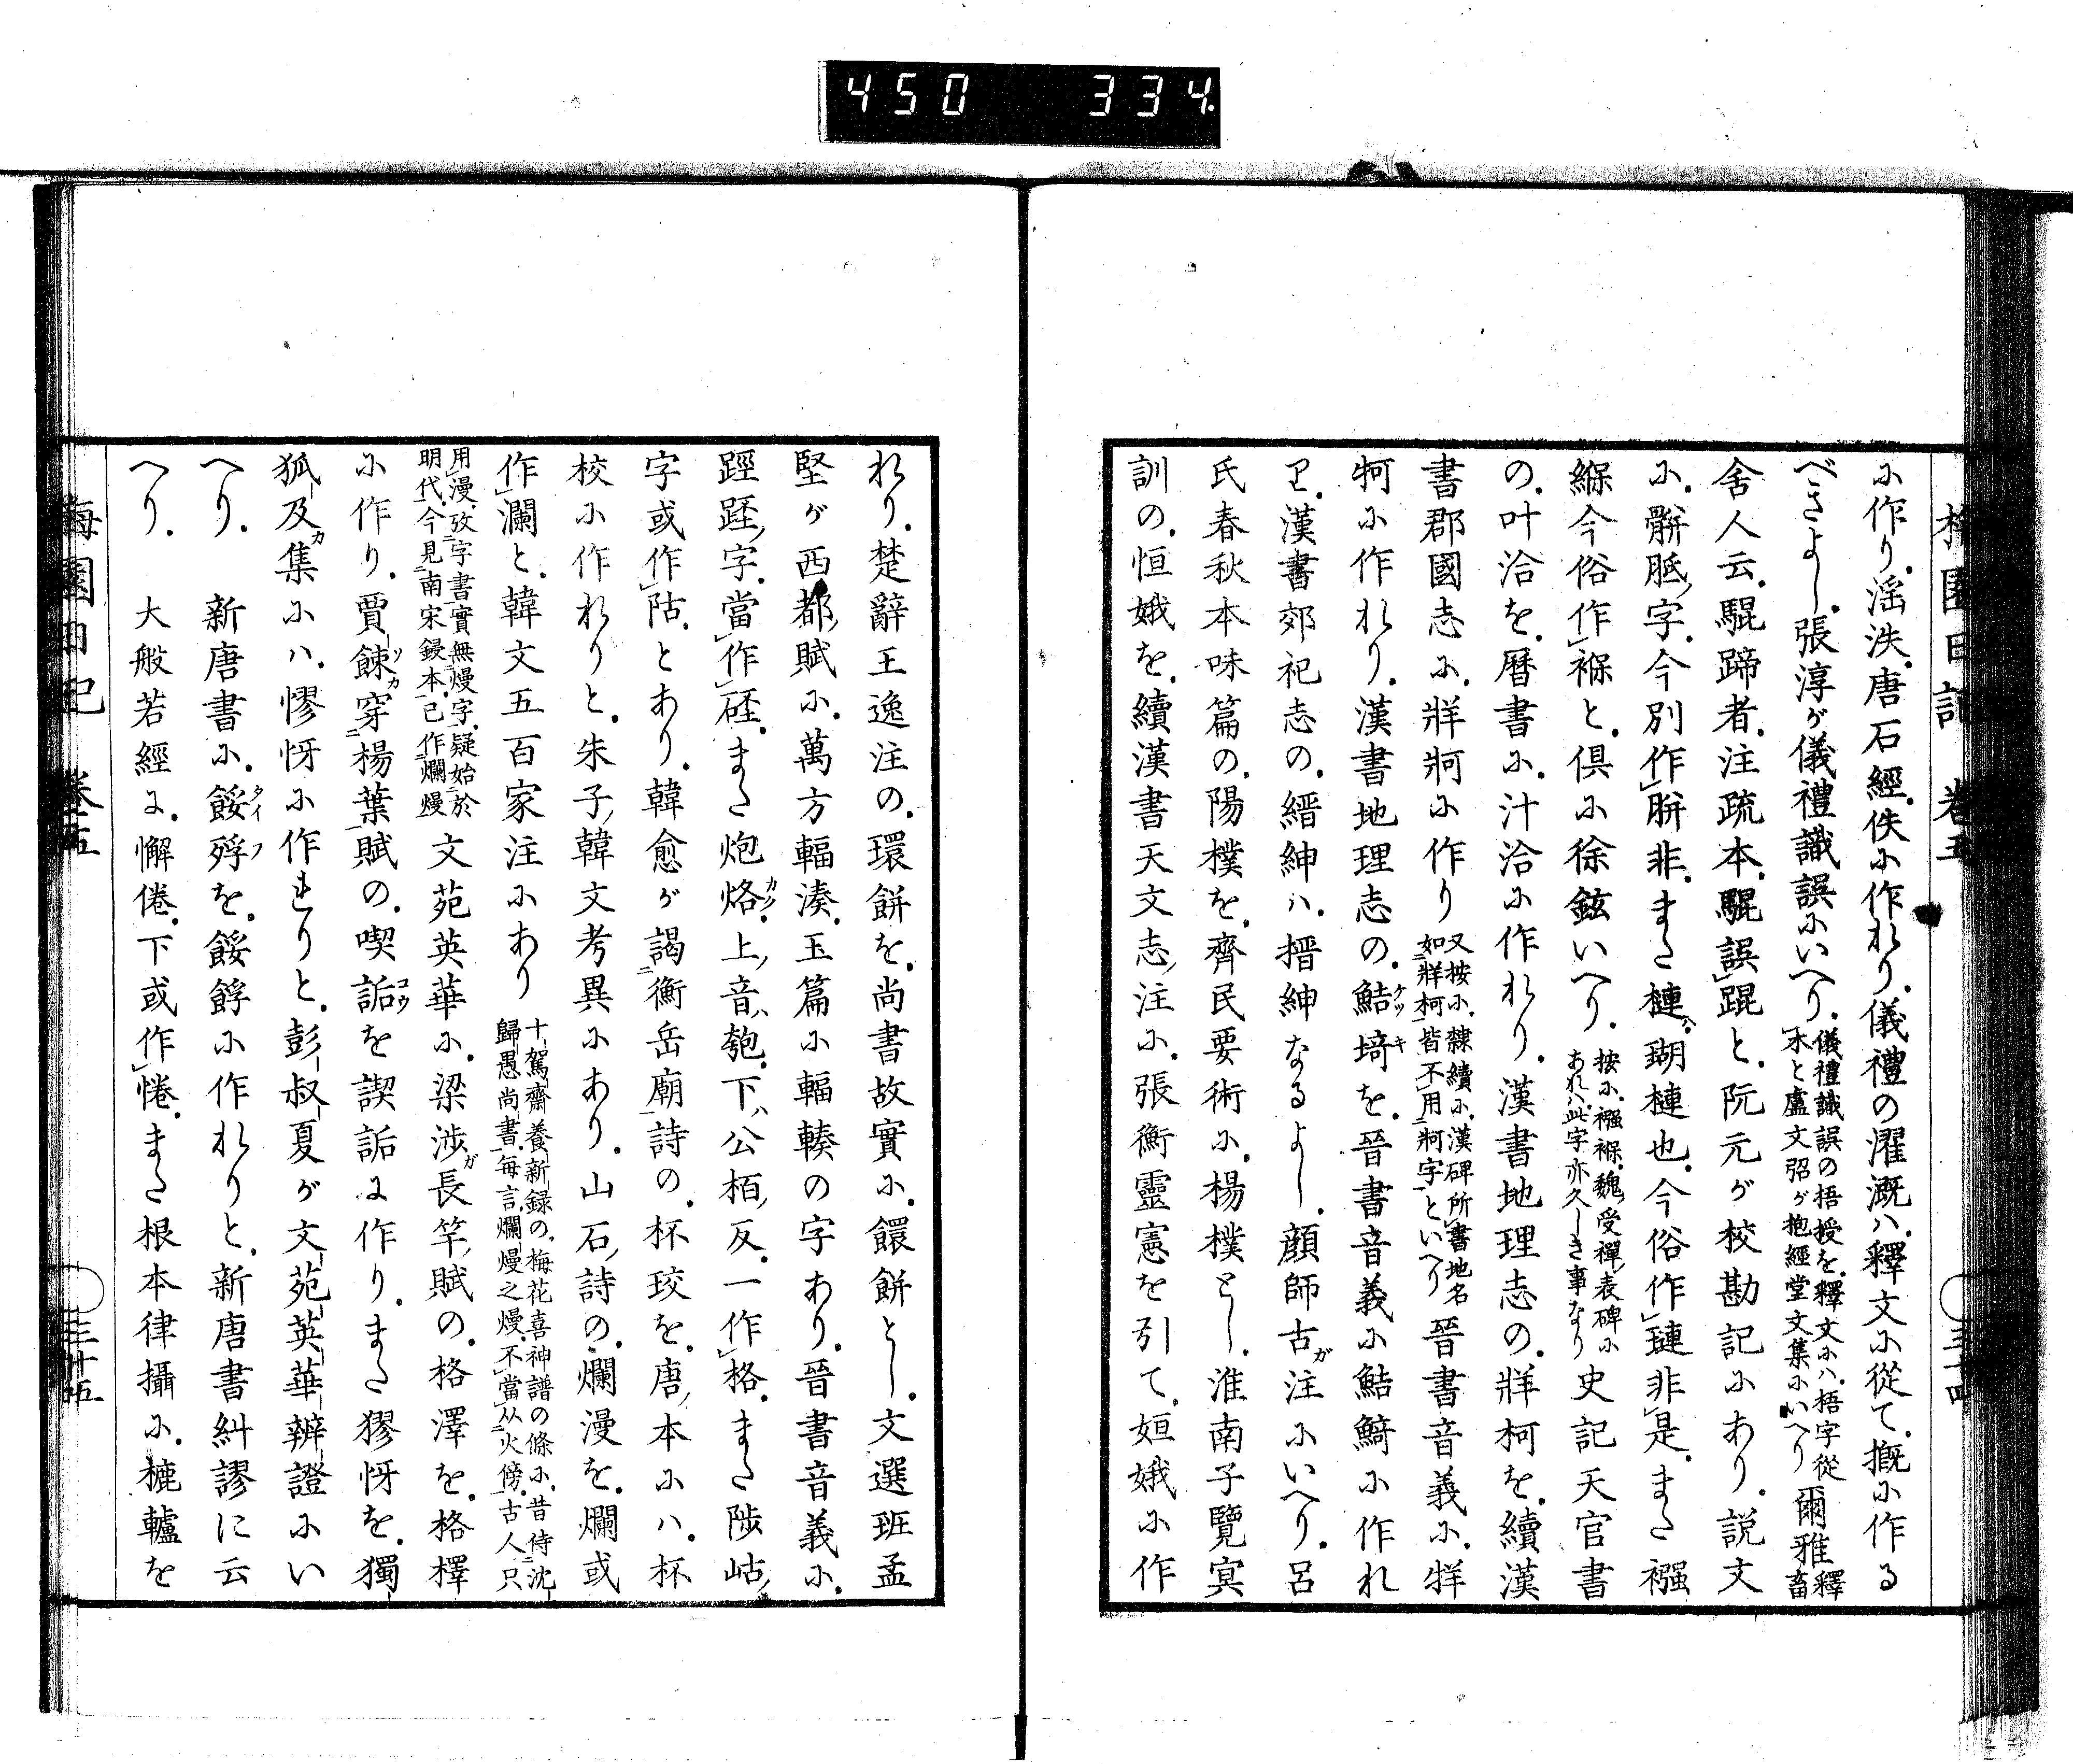 450 334
梅園日記 巻五
に作り.滛泆.唐石經.佚に作れり.儀禮の濯漑ハ.釋文に從て.摡に作る
べきよし.張淳が儀禮識誤にいへり.儀禮識誤の梧授を.釋文にハ.梧字從
木と盧文弨が抱經堂文集にいへり 爾雅釋畜
舍人云.騉蹄者.注疏本.騉誤踞と.阮元が校勘記にあり.説文
に.骿胝字.今別作胼非.また槤ハ.瑚槤也.今俗作璉非是.また襁
緥今俗作褓と.倶に徐鉉いへり.按に.襁褓.魏受禪表碑に
あれハ.此字亦久しき事なり 史記天官書
の.叶洽を.曆書に.汁洽に作れり.漢書地理志の.牂柯を.續漢
書郡國志に.牂牁に作り 又按に.隸續に.漢碑所書地名
如牂柯皆不用牁字といへり 晉書音義に.牂
牁に作れり.漢書地理志の.鮚埼を.晉書音義に鮚鯌に作れ
り.漢書郊祀志の.縉紳ハ.搢紳なるよし.顔師古ガ注にいへり.呂
氏春秋本味篇の.陽樸を.齊民要術に.楊樸とし.淮南子覽冥
訓の.恒娥を.續漢書天文志注に.張衡靈憲を引て.姮娥に作
れり.楚辭王逸注の.環餅を.尚書故實に.饌餅とし.文選班孟
堅が西都賦に.萬方輻湊.玉篇に輻輳の字あり.晉書音義に.
踁踁字.當作硜.また炮烙.上音ハ匏.下ハ公栢反.一作格.また陟岵
字或作阽.とあり.韓愈が謁衡岳廟詩の.杯珓を.唐本にハ.杯
校に作れりと.朱子韓文考異にあり.山石詩の.爛漫を.爛或
作瀾と.韓文五百家注にあり 十駕齋養新録の.梅花喜神譜の條に.昔侍沈
歸愚尚書.毎言.爛熳之熳.不當从火傍.古人只
用漫.攷字書實無熳字.疑始於
明代.今見南宋鋟本.已作爛熳 文苑英華に.梁渉ガ長竿賦の.格澤を.格檡
に作り.賈餗穿楊葉賦の.喫詬を謑詬に作り.また㺒犽を.獨
狐及カ集にハ.憀㤉に作れりと.彭叔夏が文苑英華辨證にい
へり. 新唐書に.餒殍を.餒餑に作れりと.新唐書糾謬に云
へり. 大般若經に.懈倦.下或作惓.また根本律攝に.樚轤を
梅園日記 巻五 三十五